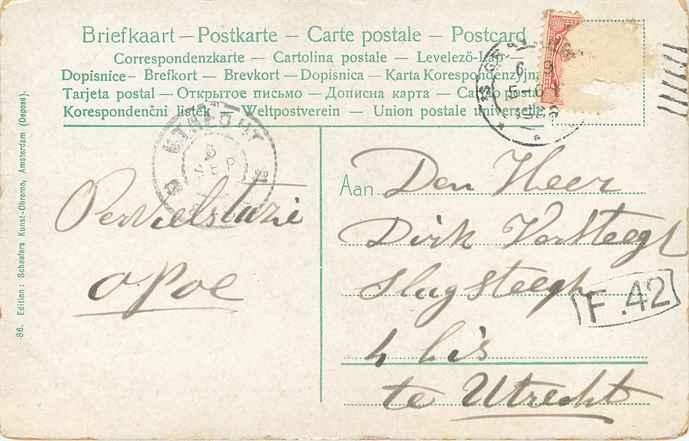 Briefkaart — Postkarte — Carte postale — Postcard
Correspondenzkarte — Cartolina postale — Levelező-Lap
Dopisnice — Brefkort — Brevkort — Dopisnica — Karta Korespondenzyjna
Tarjeta postal — Открытое письмо — Дописна карта — Cartão postal
Korespondenční lístek — Weltpostverein — Union postale universelle
UTRECHT
86. Edition: Schaefers Kunst-Chromo, Amsterdam (Deposé).
opoe
Aan Den Heer
Dirk Versteegt
Slagsteegh
F.42
4 bis
te Utrecht